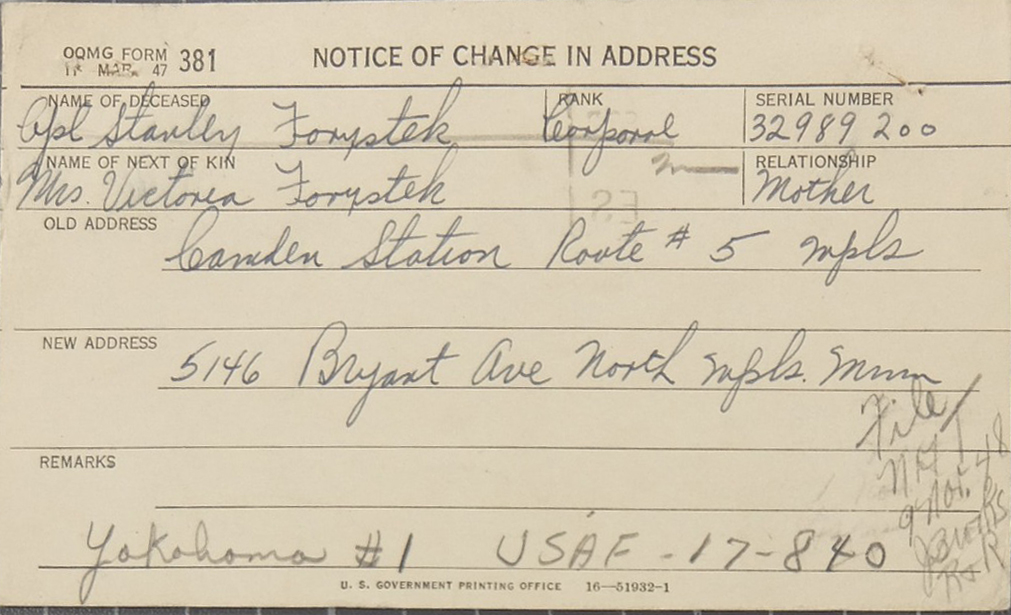 OQMG FORM 381
11 MAR. 47
NOTICE OF CHANGE IN ADDRESS
NAME OF DECEASED
Cpl Stanley Forystek
RANK
Corporal
SERIAL NUMBER
32989200
NAME OF NEXT OF KIN
Mrs. Victoria Forystek
RELATIONSHIP
Mother
OLD ADDRESS
Camden Station Route # 5 mpls
NEW ADDRESS
5146 Bryant Ave North mpls. Minn
REMARKS
File/
9 Nov. 48
R&R
Yokohama #1 USAF-17-840
U. S. GOVERNMENT PRINTING OFFICE 16—51932-1